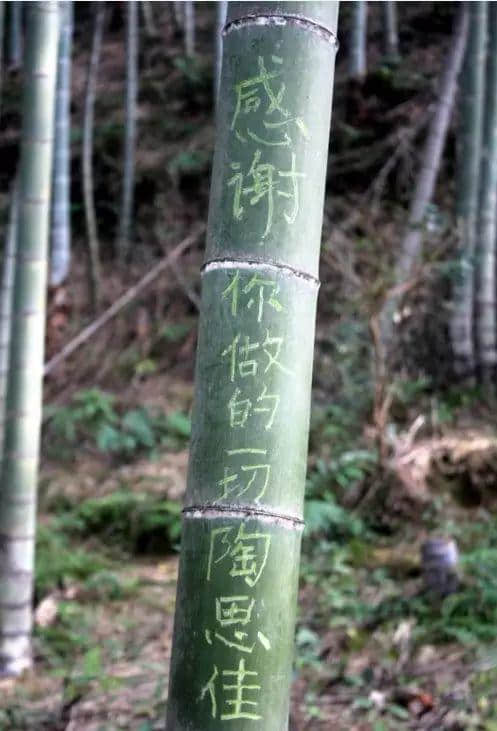 感谢
你做的一切
陶思佳